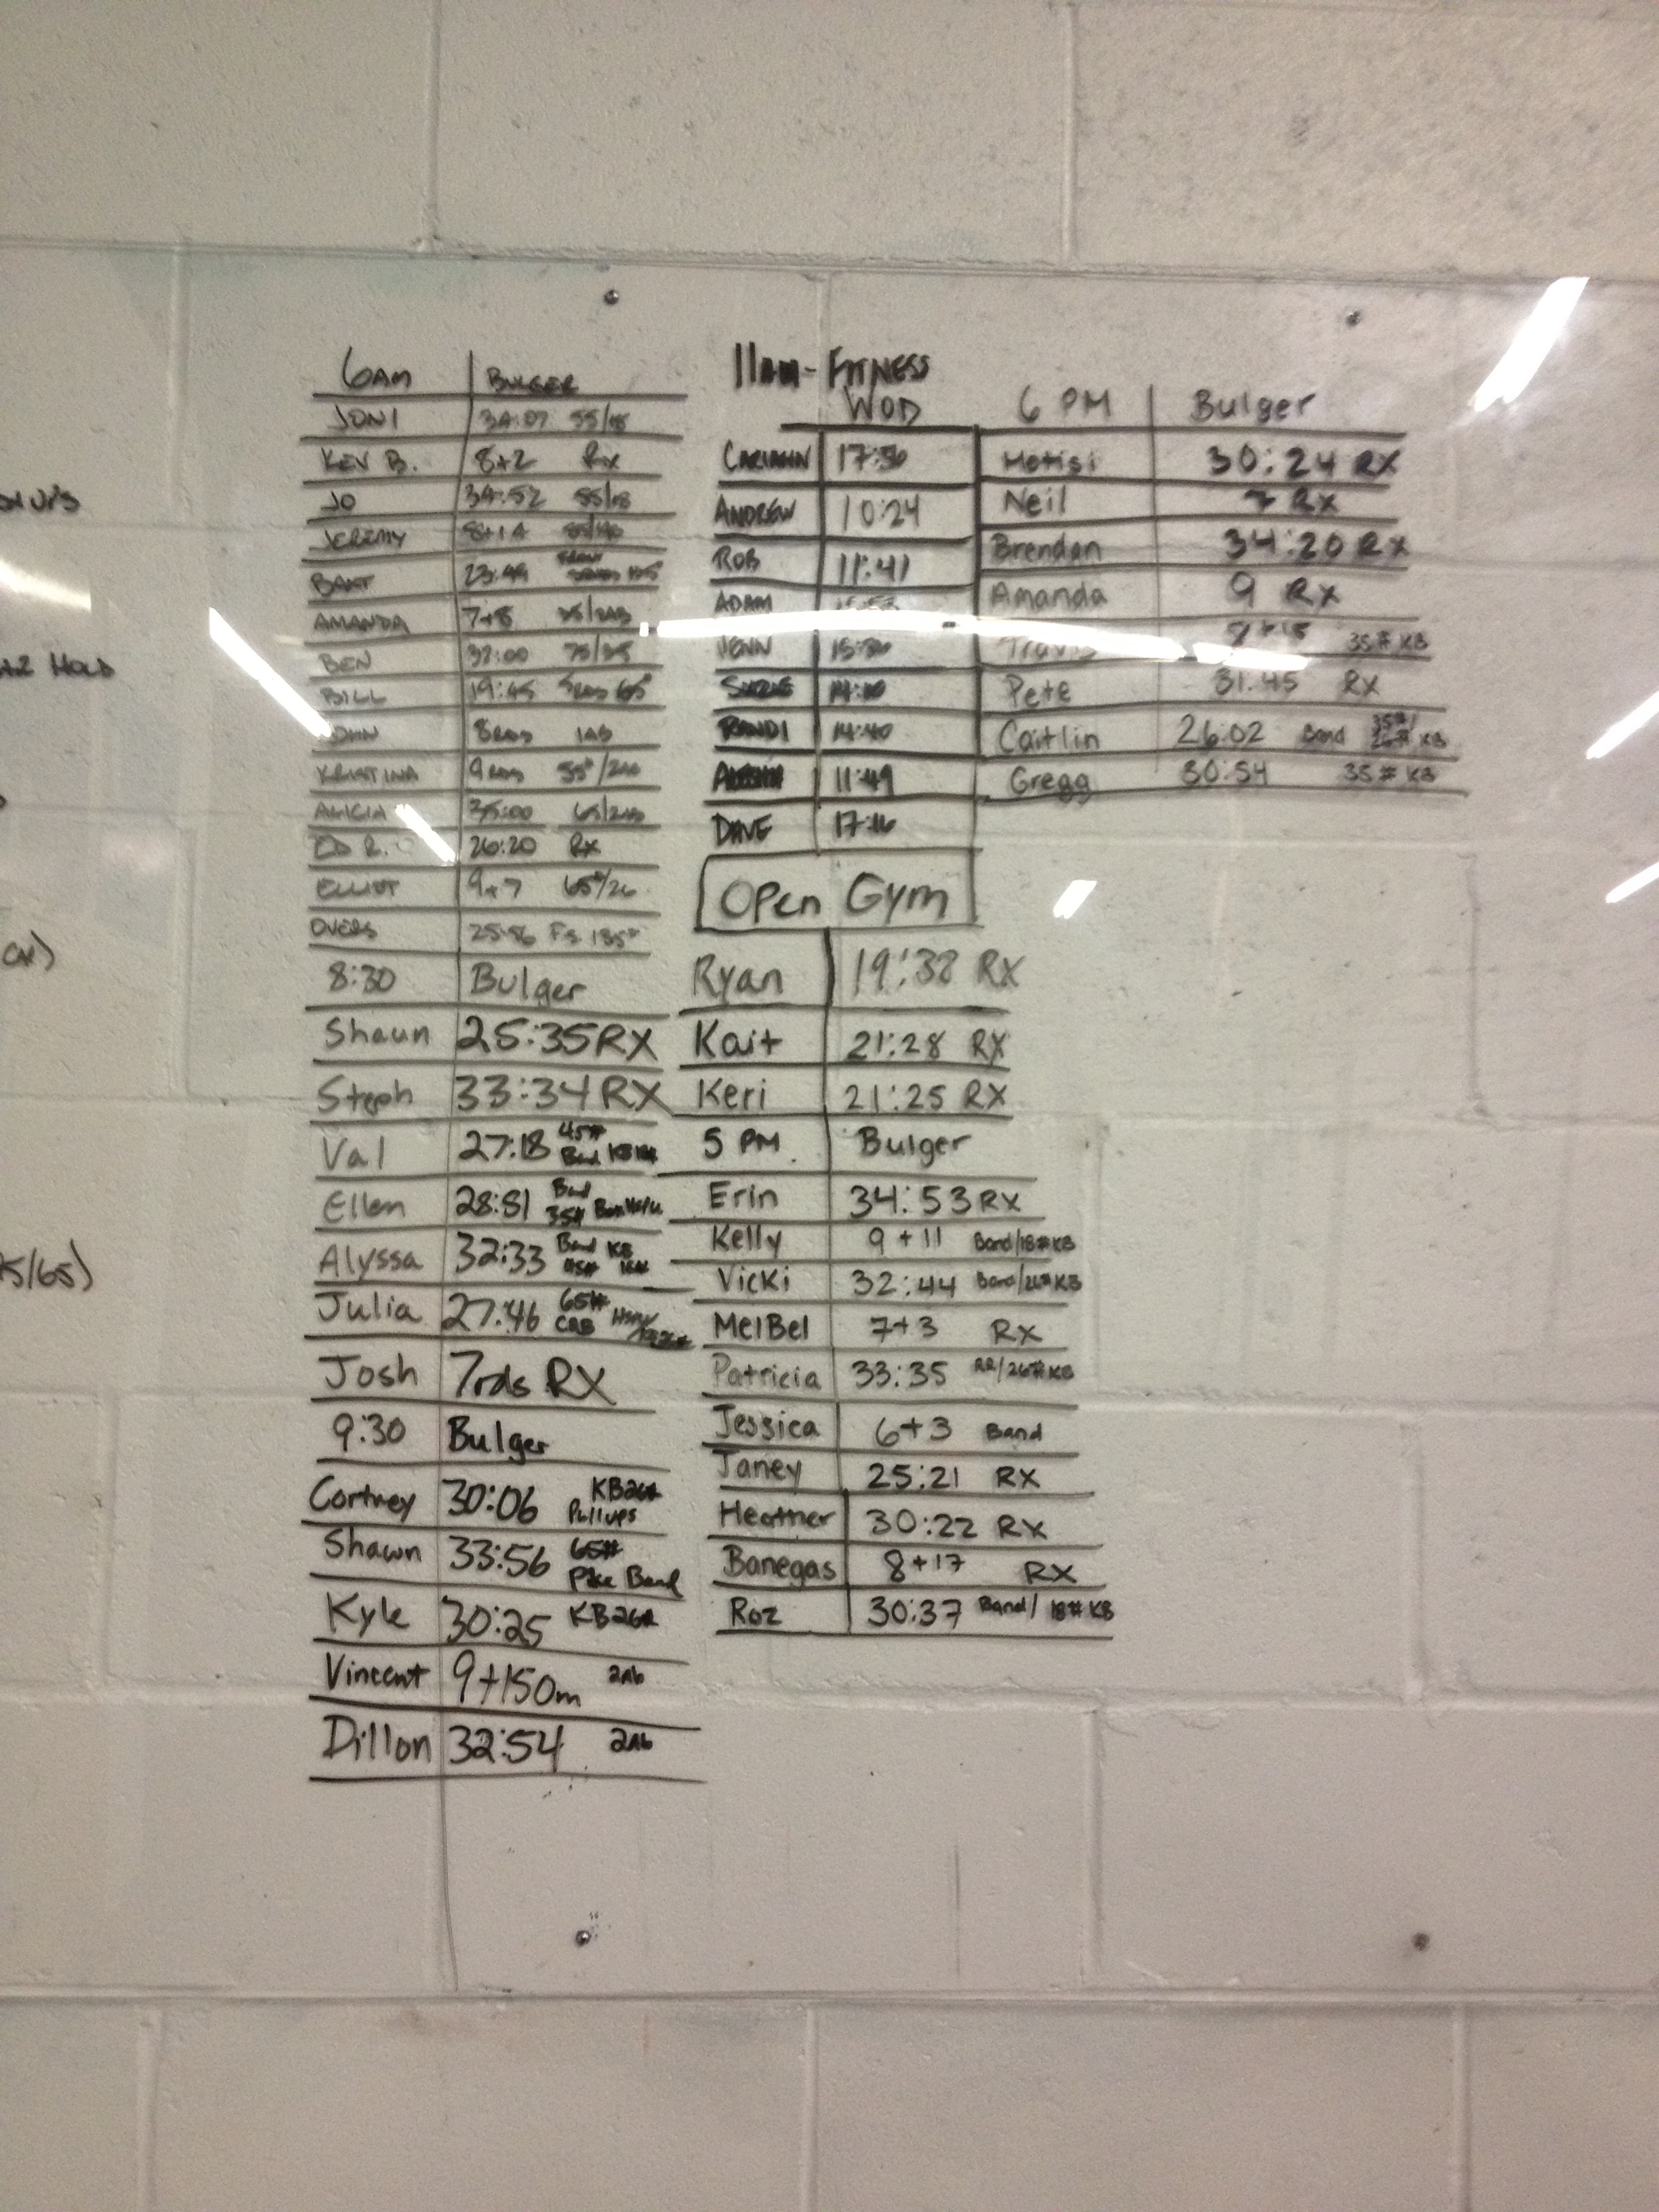 6AM BULGER
JONI 34:07 55/18
KEV B. 8+2 Rx
JO 34:52 55/18
JEREMY 8+14
BART 23:49
AMANDA 7+8
BEN 32:00 75/35
BILL 19:45 5RDS 65#
JOHN 8RDS 1AB
KRISTINA 9RDS 55#/2AB
ALICIA 35:00 65/2AB
ED R. 26:20 Rx
ELLIOT 9+7 65#/26
OVERS 25:56 FS 135#
8:30 Bulger
Shaun 25:35 RX
Steph 33:34 RX
Val 27:18 45# Band KB 18#
Ellen 28:51 Band 35#
Alyssa 32:33 Band KB 45# 18#
Julia 27:46 65#
Josh 7rds RX
9:30 Bulger
Cortney 30:06 KB26# Pullups
Shawn 33:56 65# Band
Kyle 30:25 KB26#
Vincent 9+150m 2Ab
Dillon 32:54 2Ab
11am - FITNESS
WOD
ANDREW 10:24
ROB 11:41
ADAM
JENN
SUZIE
RANDI 14:40
11:49
DAVE 17:16
Open Gym
Ryan 19:38 RX
Kait 21:28 RX
Keri 21:25 RX
5 PM Bulger
Erin 34:53 RX
Kelly 9+11 Band/18#KB
Vicki 32:44 Band/26#KB
MelBel 7+3 RX
Patricia 33:35 RR/26#KB
Jessica 6+3 Band
Janey 25:21 RX
Heather 30:22 RX
Banegas 8+17 RX
Roz 30:37 Band/18#KB
6 PM Bulger
Motisi 30:24 RX
Neil 7 Rx
Brendan 34:20 Rx
Amanda 9 Rx
Travis 35#KB
Pete 31:45 RX
Caitlin 26:02 Band 35#/26# KB
Gregg 30:54 35#KB
HOLD